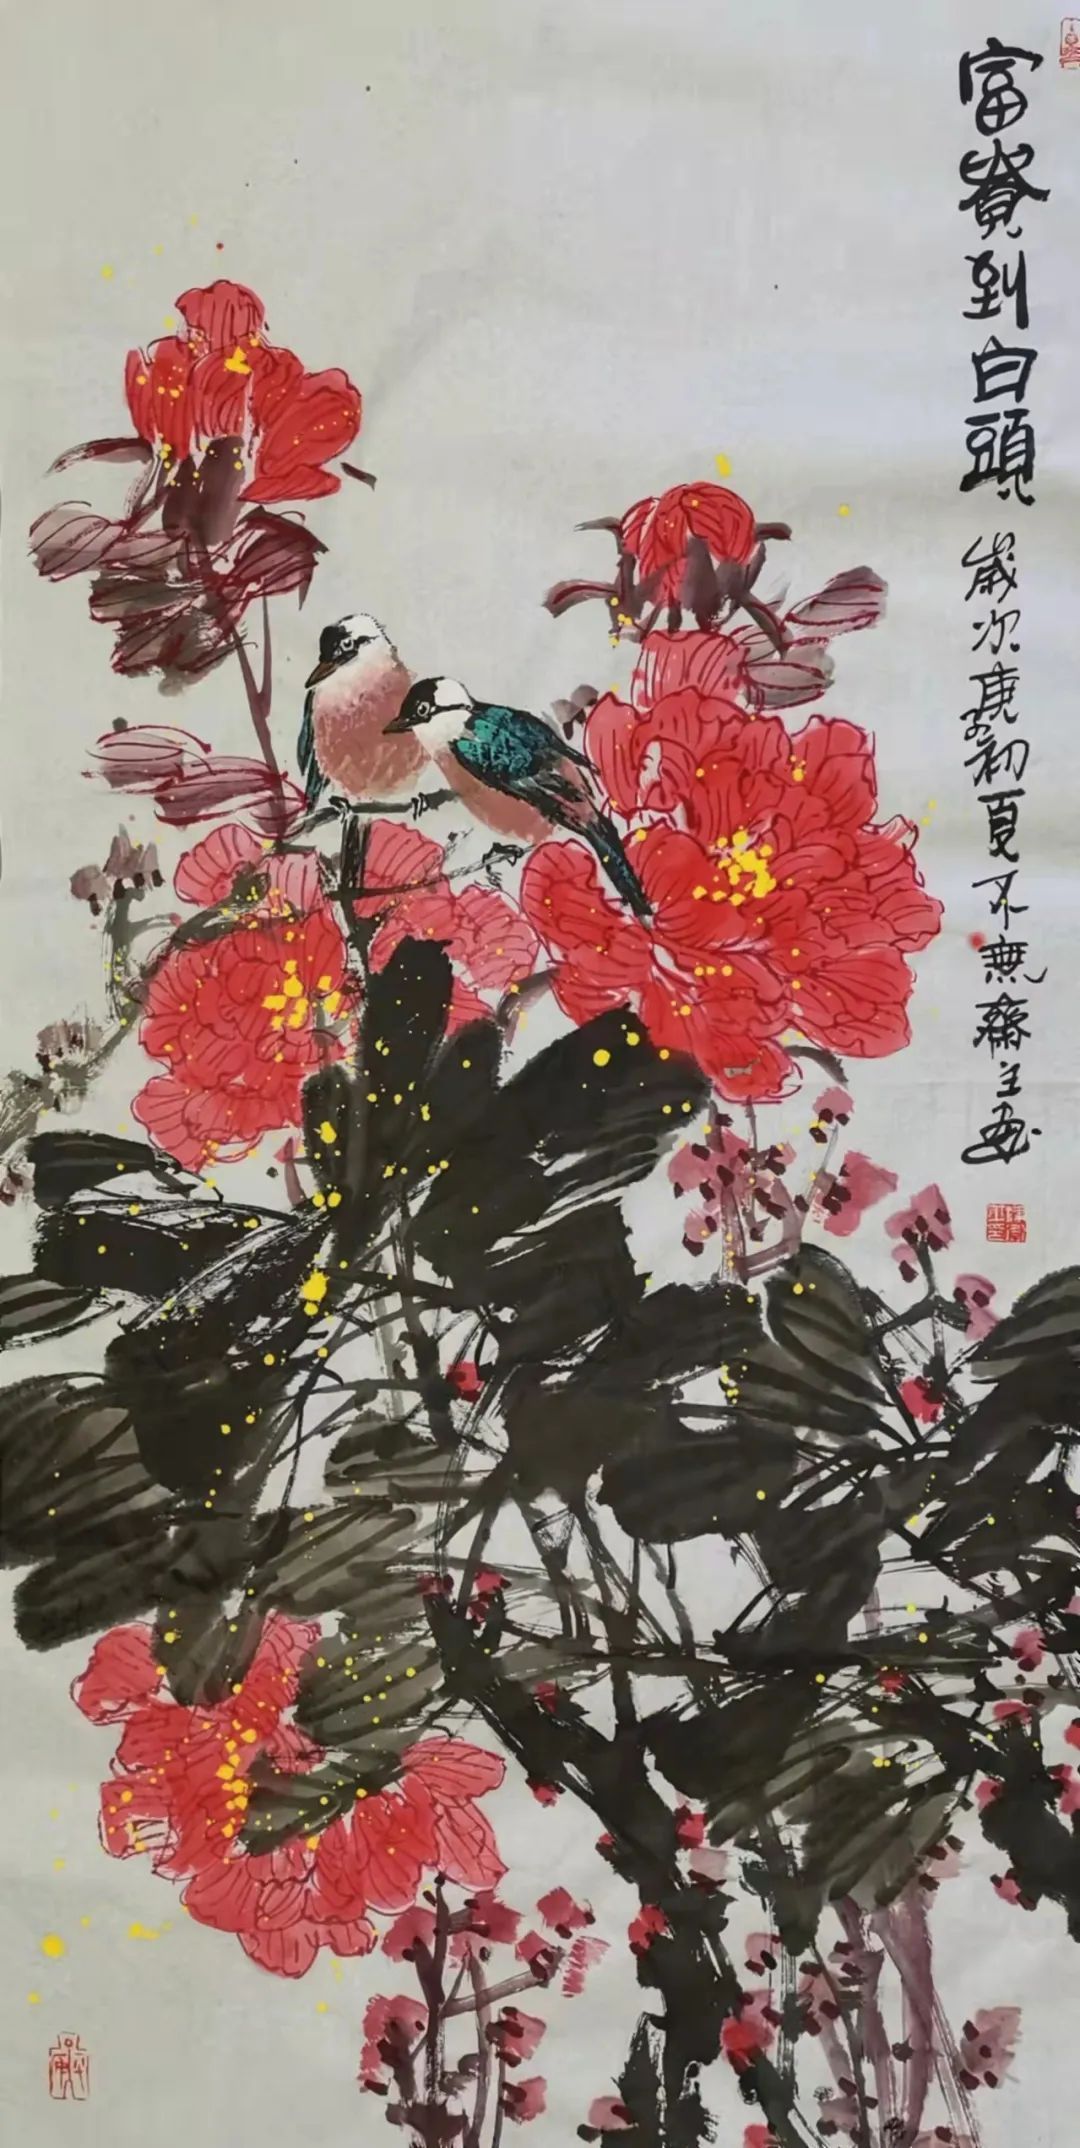 富貴到白頭
歲次庚子初夏不無齋主畫